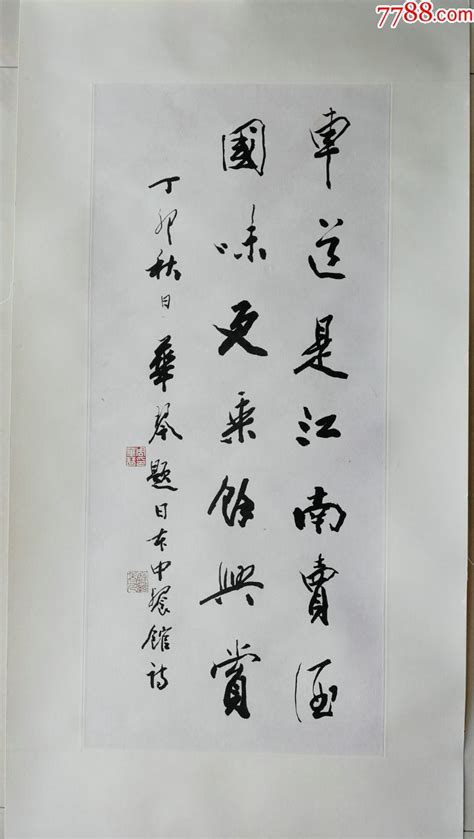 7788.com
車道是江南賣酒
國味更乘餘興賞
丁卯秋日華琴題日本中餐館詩